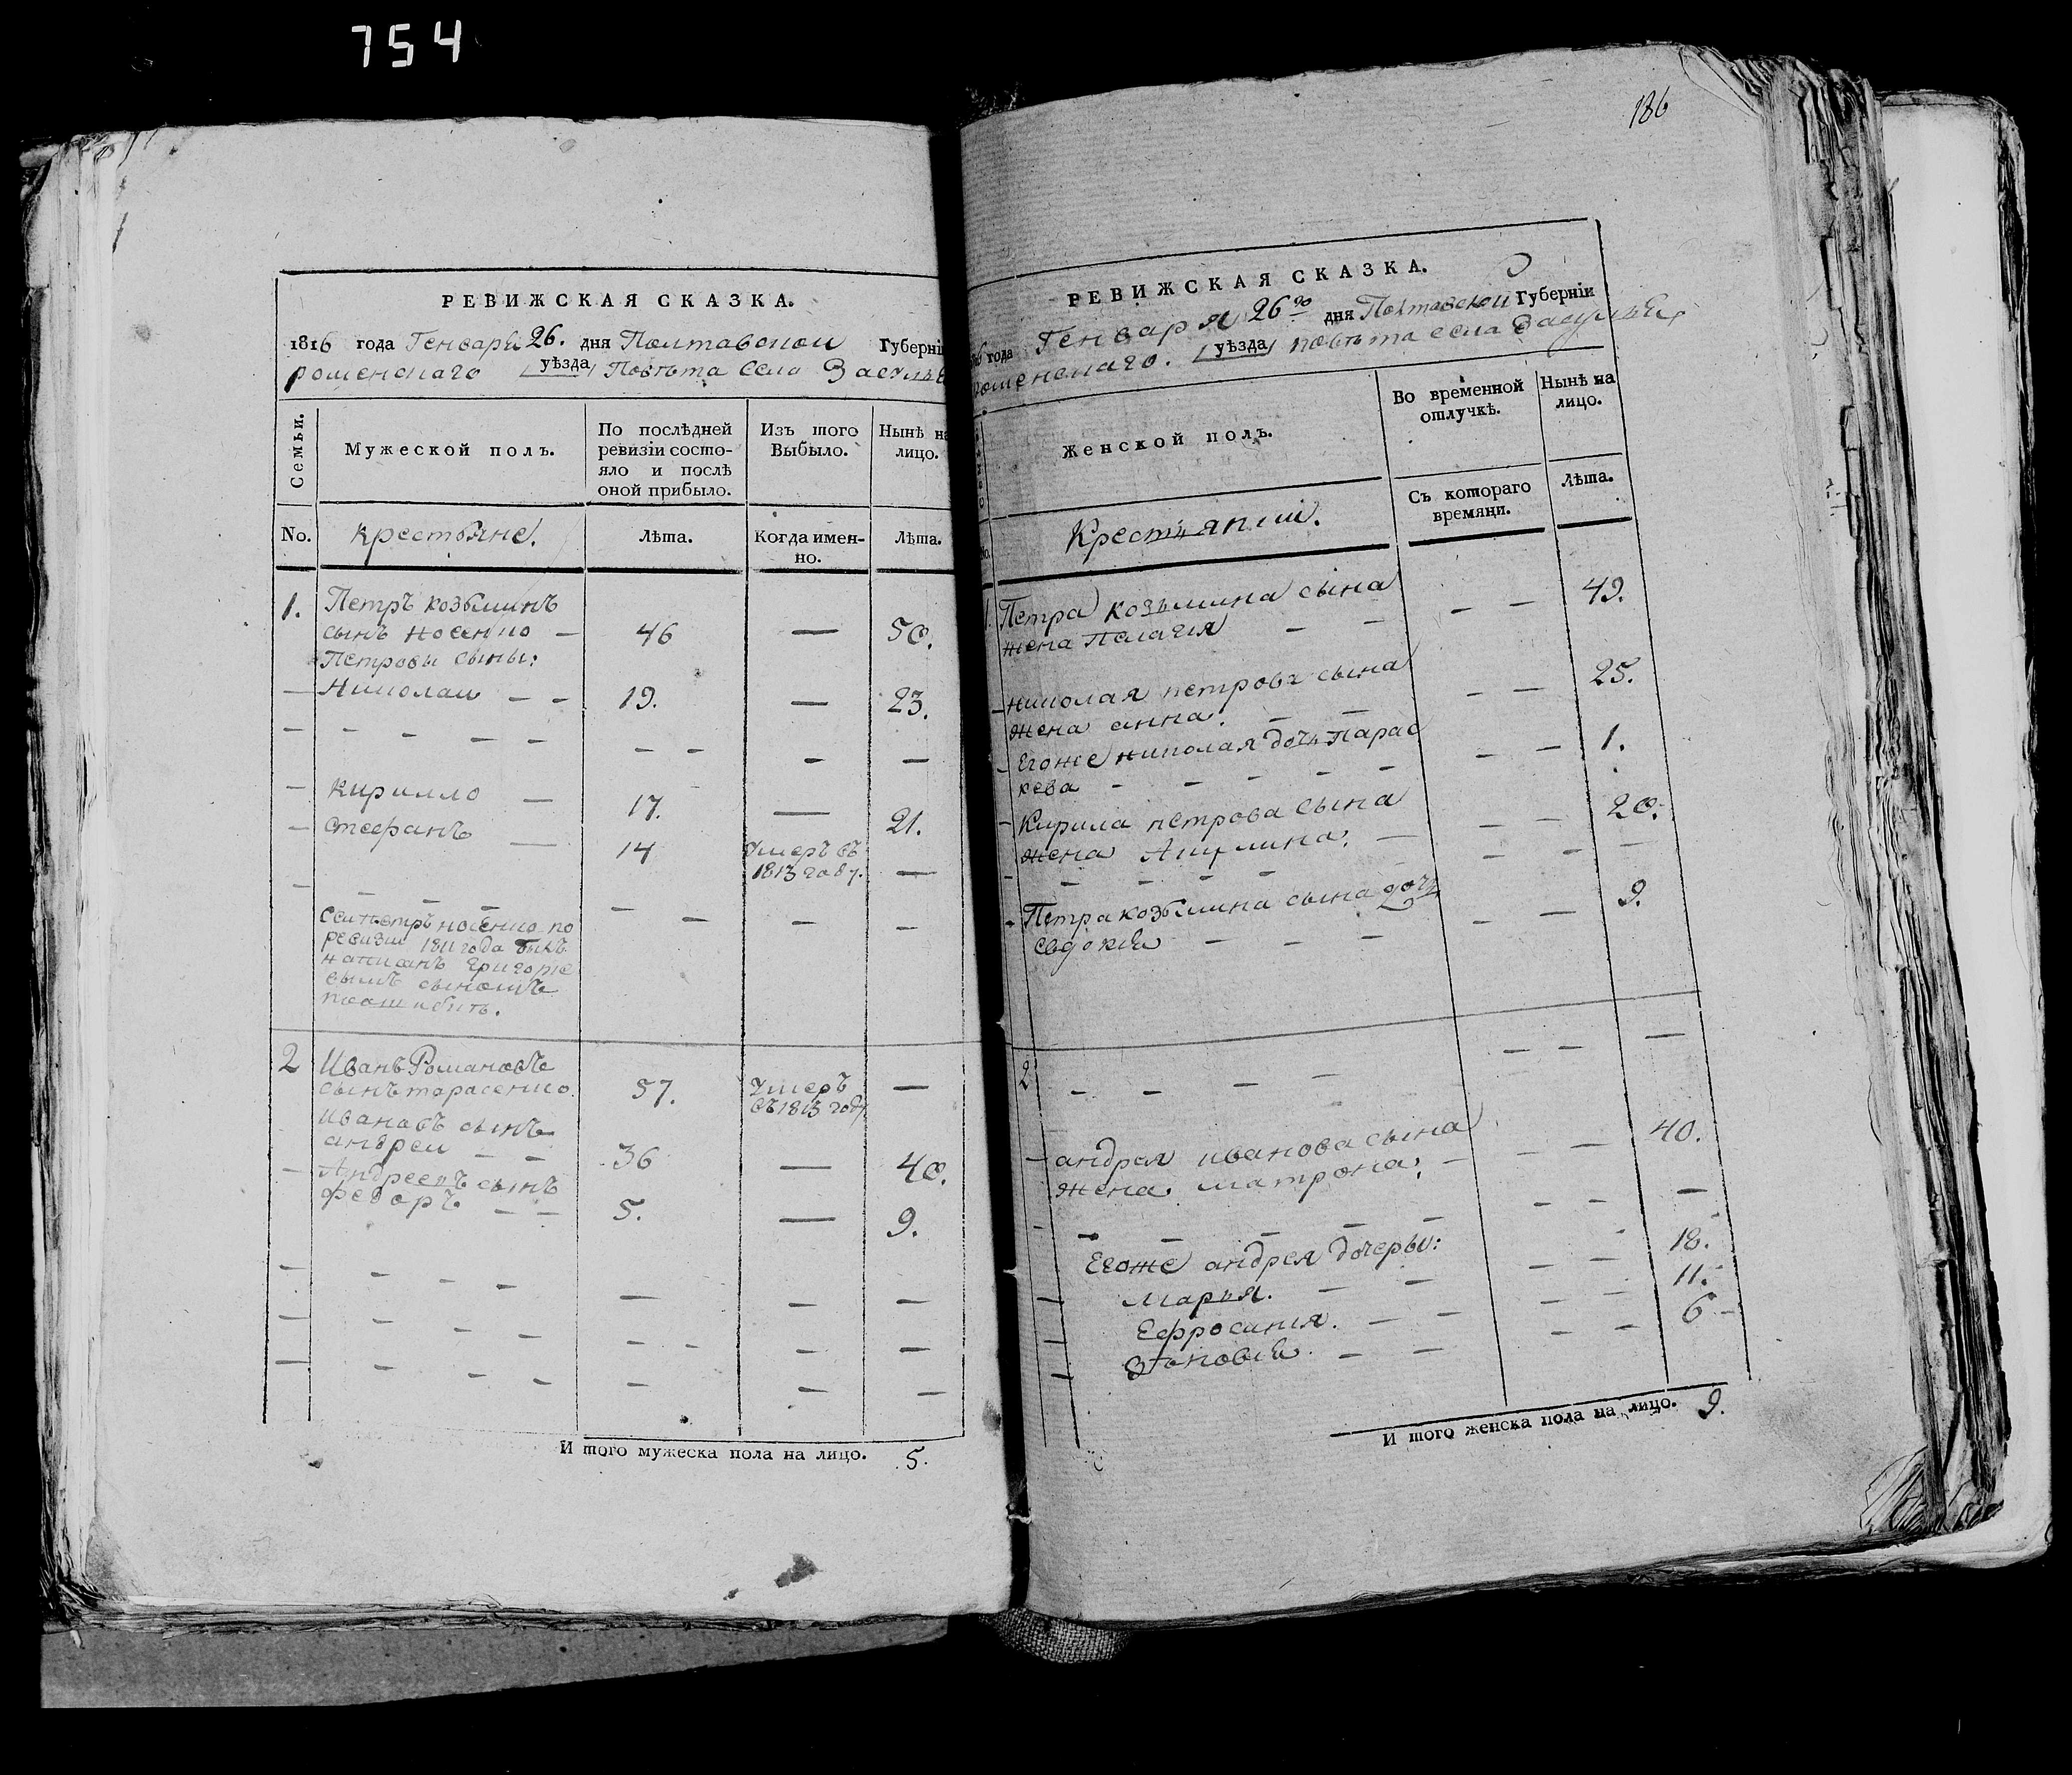 754
РЕВИЖСКАЯ СКАЗКА.
1816 года Генваря 26. дня Полтавской Губерніи
роменскаго уѣзда Повѣта Села Засулья
Семьи.
Мужеской полъ.
По послѣдней
ревизіи состо-
яло и послѣ
оной прибыло.
Изъ того
Выбыло.
Нынѣ на
лицо.
No.
крестьяне.
Лѣта.
Когда имен-
но.
Лѣта.
1. Петръ козьминъ
сынъ носенко — 46 — 50.
Петровы сыны:
— Николай — — 19. — 23.
— Кирилло — 17. — 21.
— стефанъ — 14 умеръ въ
1813 году. —
Сей петръ носенко по
ревизіи 1811 года былъ
написанъ григорье
вымъ сыномъ
2 Иванъ Романовъ
сынъ тарасенко 57. умеръ
въ 1813 году —
Ивановъ сынъ
андрей — — 36 — 40.
— Андреевъ сынъ
федоръ — — 5. — 9.
И того мужеска пола на лицо. 5.
186
РЕВИЖСКАЯ СКАЗКА.
года Генваря 26го дня Полтавской Губерніи
роменскаго. уѣзда повѣта села Засулья
Женской полъ.
Во временной
отлучкѣ.
Нынѣ на
лицо.
No.
Крестьянки.
Съ котораго
времяни.
Лѣта.
1. Петра козьмина сына
жена Пелагія — — — — 49.
— николая петрова сына
жена анна. — — — — 25.
— Егоже николая дочь Парас
кева — — — — — — — 1.
— Кирила петрова сына
жена Акулина. — — — 20.
— Петра козьмина сына дочь
евдокія — — — — — 9.
2 — — — — — — —
— андрея иванова сына
жена матрона. — — — 40.
Егоже андрея дочеры:
— Марья. — — — — 18.
— Ефросинія. — — — — 11.
— Зѣновія. — — — — 6
И того женска пола на лицо. 9.